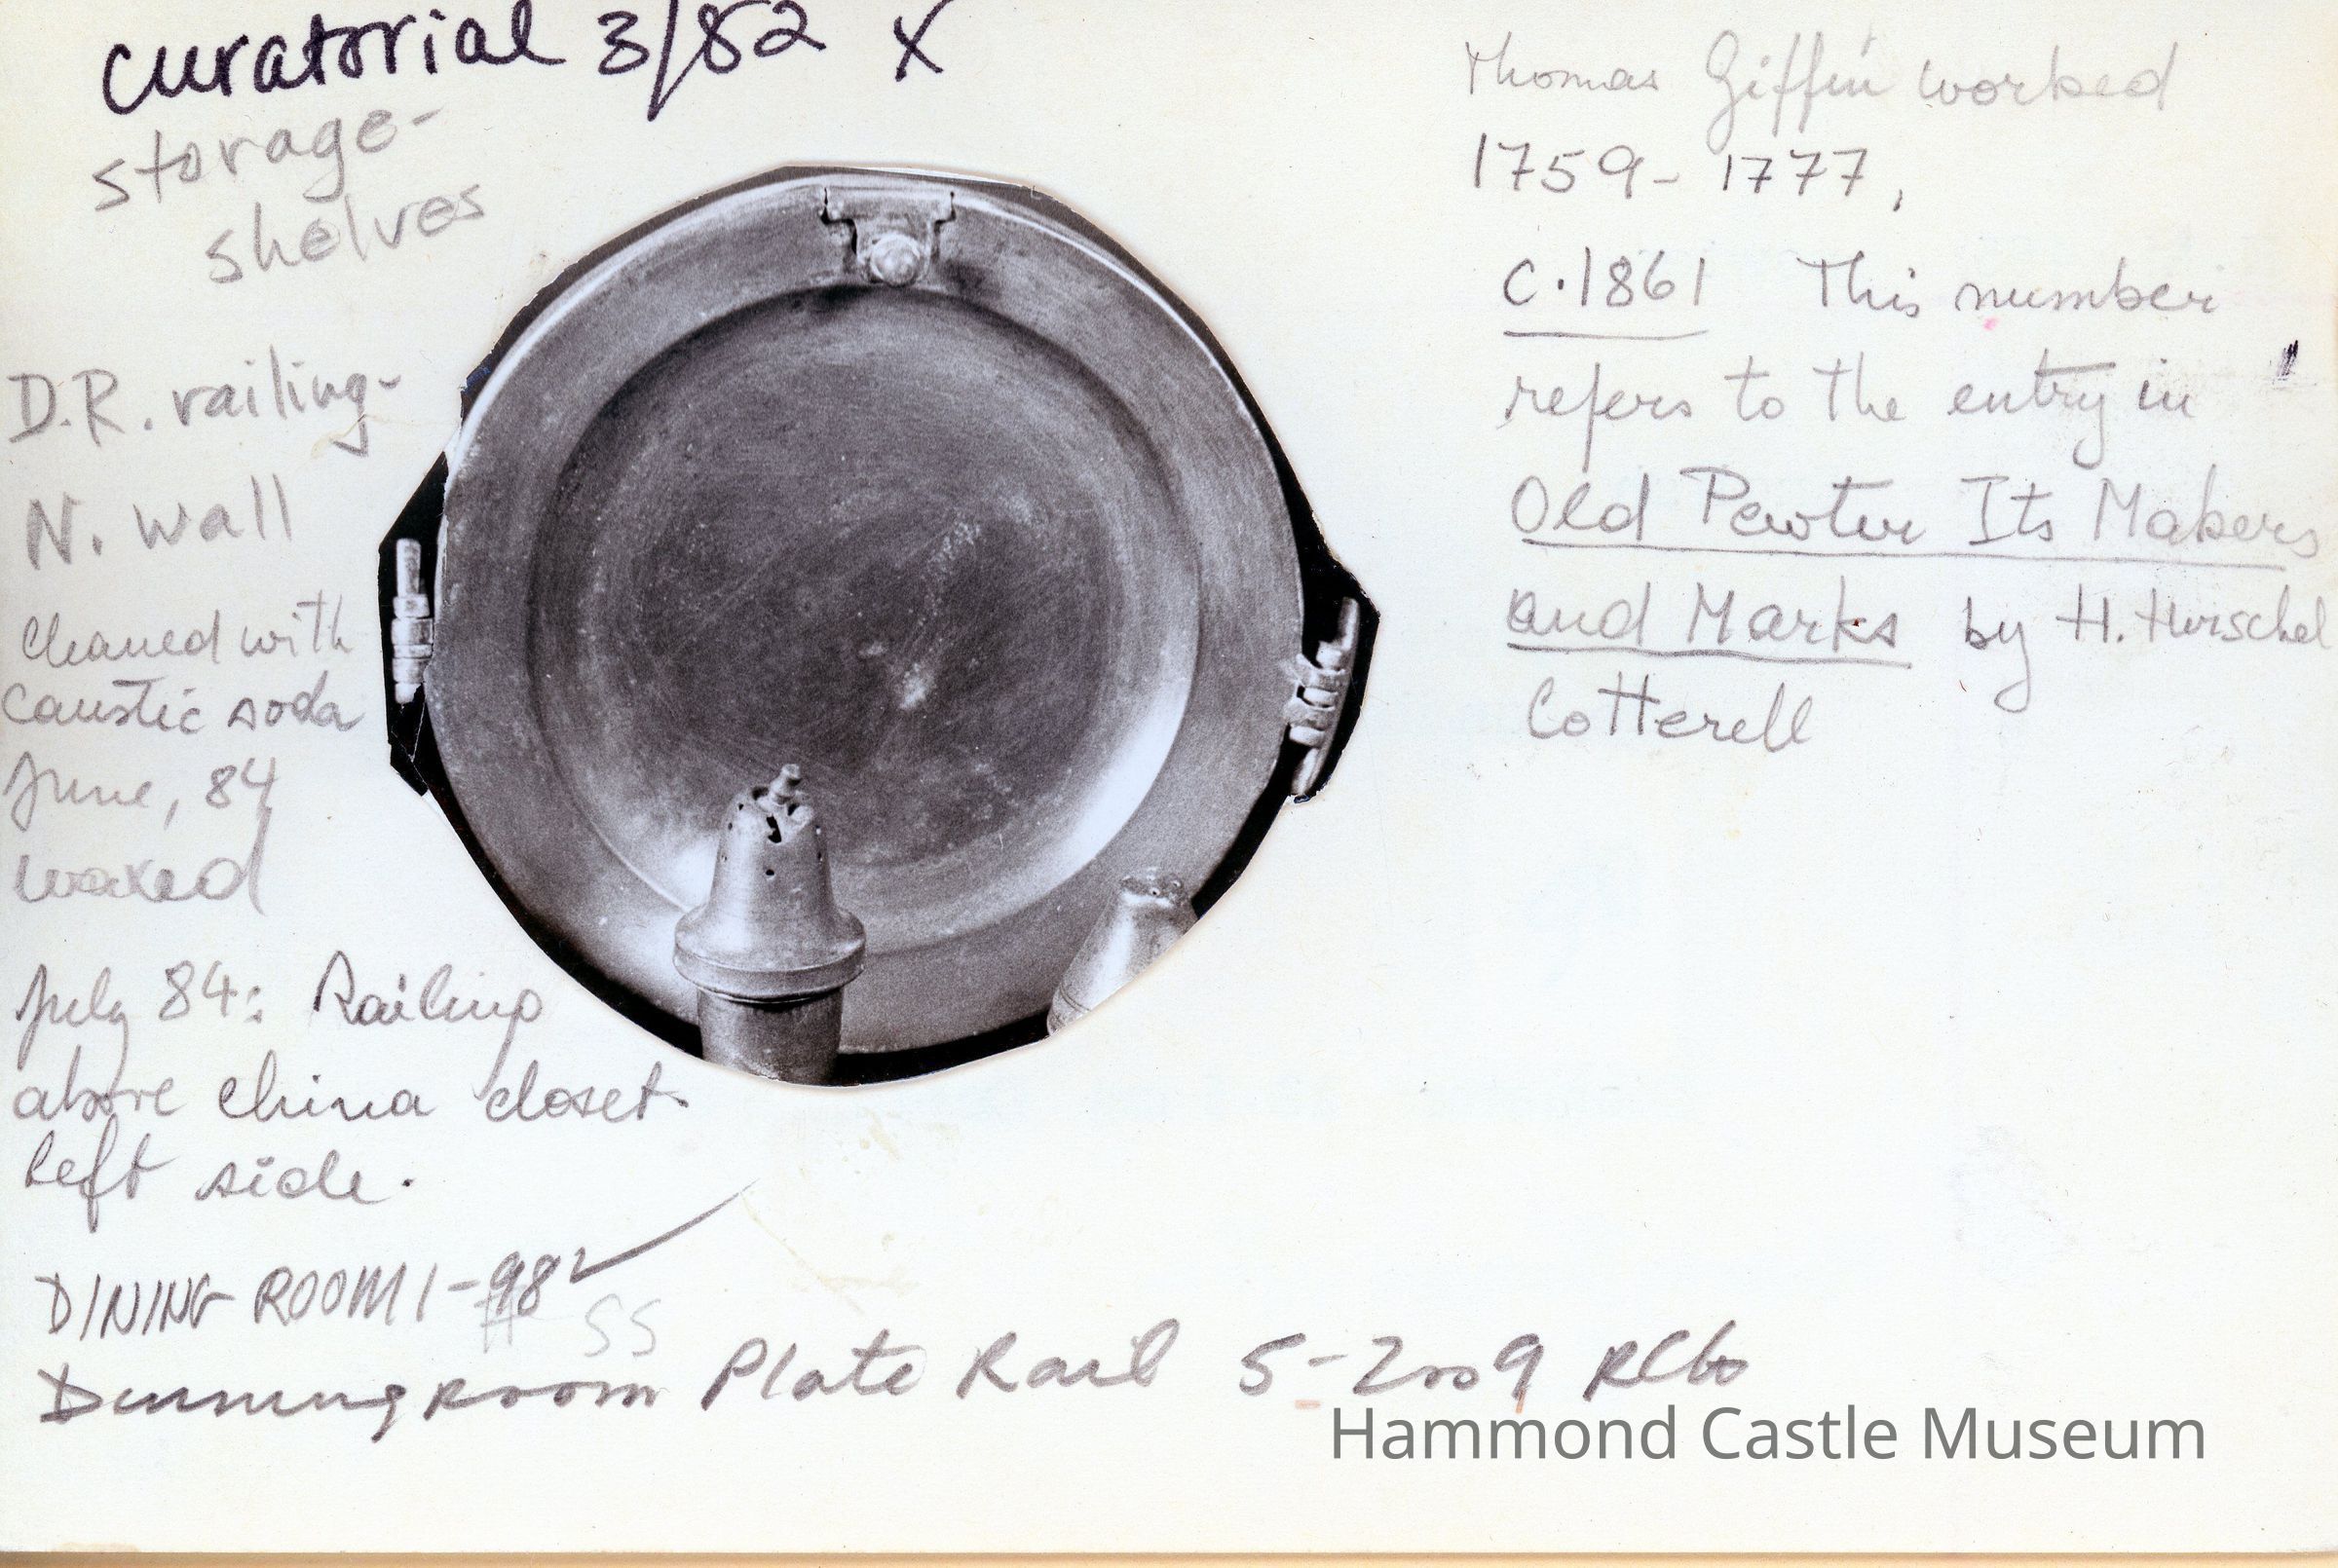 curatorial 3/82 X
storage-
shelves
D.R. railing-
N. wall
Cleaned with
caustic soda
June, 84
waxed
July 84: Railing
above china closet
left side.
DINING ROOM 1-98
# SS
Dinning room Plate Rail 5-2009
Thomas Giffin worked
1759-1777,
C.1861 This number
refers to the entry in
Old Pewter Its Makers
and Marks by H. Herschel
Cotterell
Hammond Castle Museum